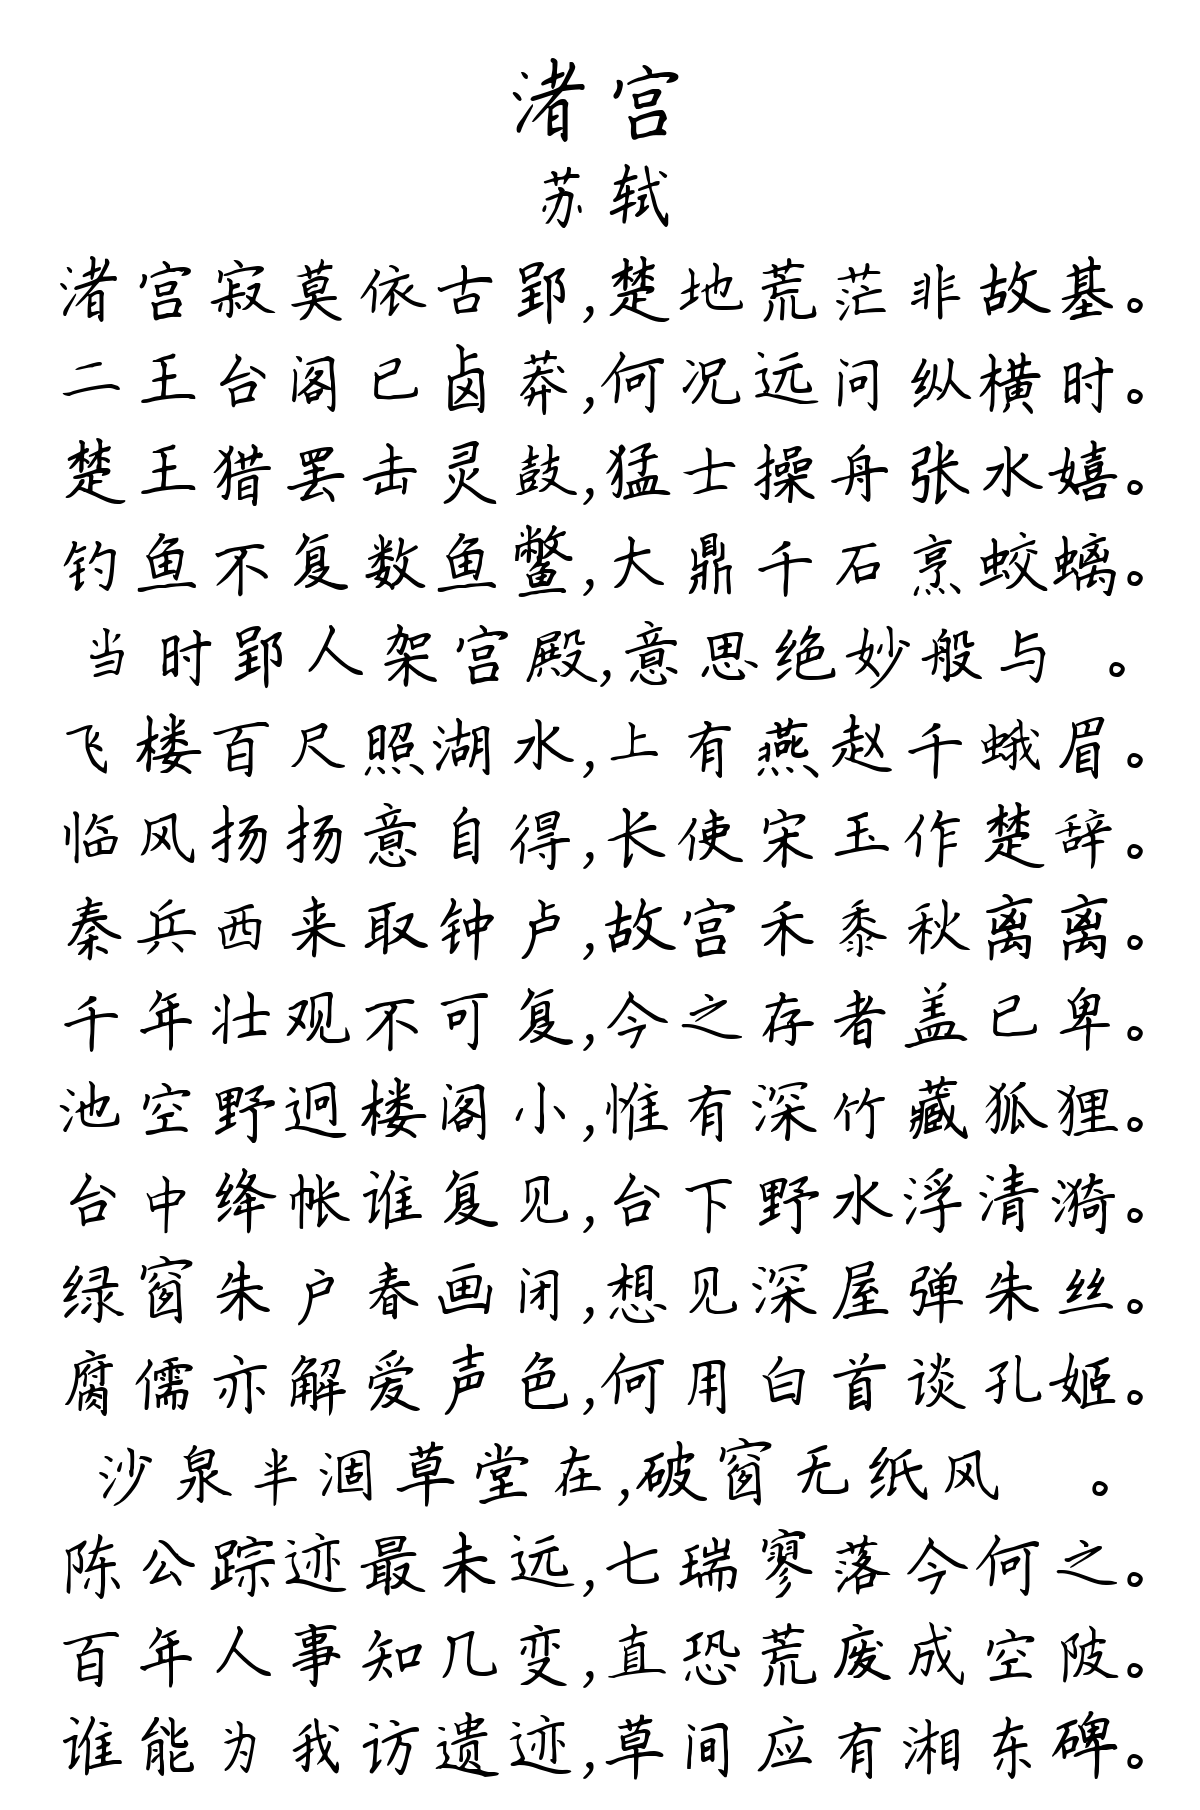 渚宫
苏轼
渚宫寂莫依古郢,楚地荒茫非故基。
二王台阁已卤莽,何况远问纵横时。
楚王猎罢击灵鼓,猛士操舟张水嬉。
钓鱼不复数鱼鳖,大鼎千石烹蛟螭。
当时郢人架宫殿,意思绝妙般与 。
飞楼百尺照湖水,上有燕赵千蛾眉。
临风扬扬意自得,长使宋玉作楚辞。
秦兵西来取钟卢,故宫禾黍秋离离。
千年壮观不可复,今之存者盖已卑。
池空野迥楼阁小,惟有深竹藏狐狸。
台中绛帐谁复见,台下野水浮清漪。
绿窗朱户春画闭,想见深屋弹朱丝。
腐儒亦解爱声色,何用白首谈孔姬。
沙泉半涸草堂在,破窗无纸风 。
陈公踪迹最未远,七瑞寥落今何之。
百年人事知几变,直恐荒废成空陂。
谁能为我访遗迹,草间应有湘东碑。